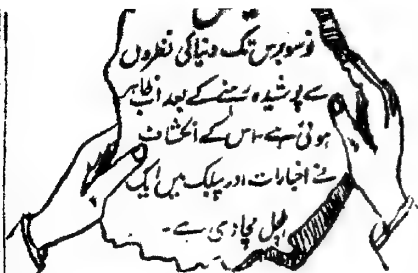 نو سو برس تک دنیا کی نظروں
سے پوشیدہ رہنے کے بعد اب ظاہر
ہوئی ہے۔ اس کے انکشاف
نے اخبارات اور پبلک میں ایک
ہلچل مچا دی ہے۔